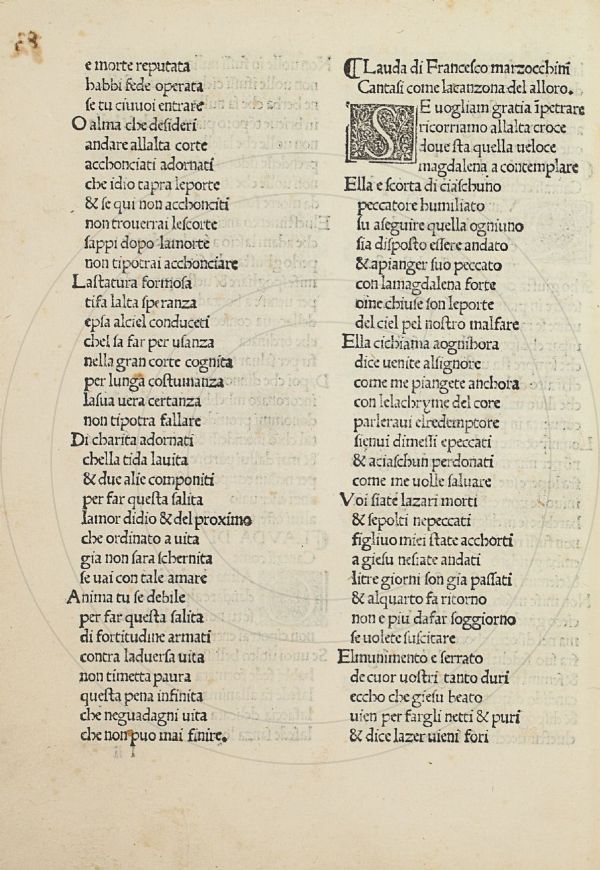 e morte reputata
habbi fede operata
se tu ci uuoi entrare
O alma che desideri
andare allalta corte
acchonciati adornati
che idio tapra leporte
& se qui non acchonciti
non trouerrai lescorte
sappi dopo lamorte
non tipotrai acchonciare
Lastatura formosa
tifa lalta speranza
epsa alciel conduceti
chel sa far per usanza
nella gran corte cognita
per lunga costumanza
lasua uera certanza
non tipotra fallare
Di charita adornati
chella tida lauita
& due alie componiti
per far questa salita
lamor didio & del proximo
che ordinato a uita
gia non sara schernita
se uai con tale amare
Anima tu se debile
per far questa salita
di fortitudine armati
contra laduersa uita
non timetta paura
questa pena infinita
che neguadagni uita
che non puo mai finire.
Lauda di Francesco marzocchini
Cantasi come lacanzona del alloro.
SE uogliam gratia īpetrare
ricorriamo allalta croce
doue sta quella ueloce
magdalena a contemplare
Ella e scorta di ciaschuno
peccatore humiliato
su aseguire quella ogniuno
sia disposto essere andato
& apianger suo peccato
con lamagdalena forte
ome chiuse son leporte
del ciel pel nostro malfare
Ella cichiama aognihora
dice uenite alsignore
come me piangete anchora
con lelachryme del core
parleraui elredemptore
sienui dimessi epeccati
& aciaschun perdonati
come me uolle saluare
Voi siate lazari morti
& sepolti nepeccati
figliuo miei state acchorti
a giesu nesiate andati
litre giorni son gia passati
& alquarto fa ritorno
non e piu dafar soggiorno
se uolete suscitare
Elmunimento e serrato
de cuor uostri tanto duri
eccho che giesu beato
uien per fargli netti & puri
& dice lazer uieni fori